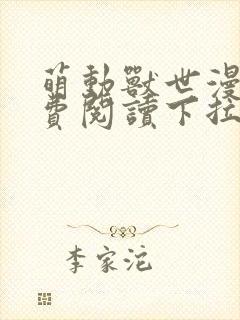 萌動獸世漫
費閱讀下拉
李家沱